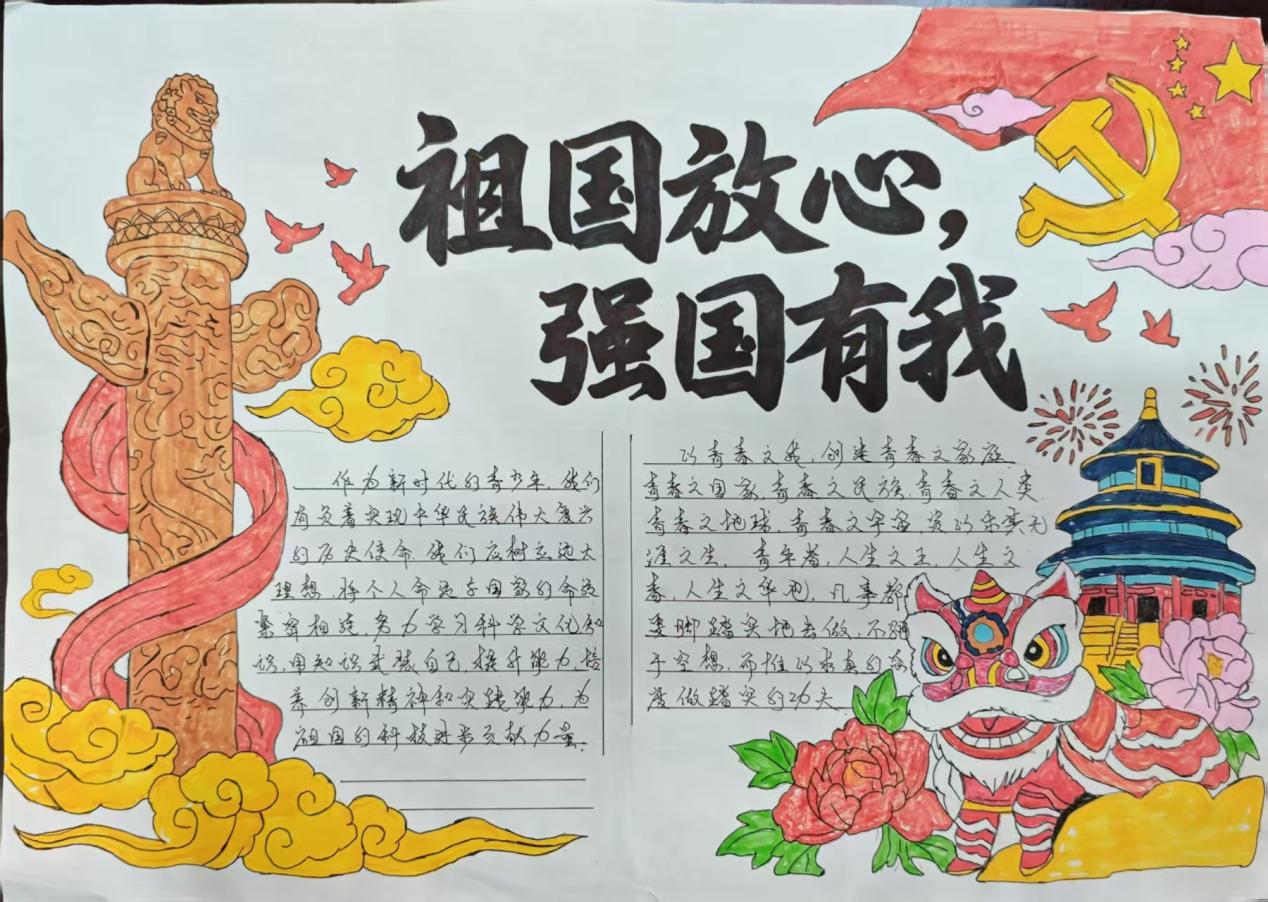 祖国放心，
强国有我
作为新时代的青少年，我们
肩负着实现中华民族伟大复兴
的历史使命，我们应树立远大
理想，将个人命运与国家的命运
紧密相连，努力学习科学文化知
识，用知识武装自己，提升能力，培
养创新精神和实践能力，为
祖国的科技进步贡献力量．
以青春之我，创建青春之家庭
青春之国家，青春之民族，青春之人类
青春之地球，青春之宇宙，资以乐其无
涯之生．青年者，人生之王，人生之
春，人生之华也．凡事都
要脚踏实地去做，不驰
于空想，而惟以求真的态
度做踏实的功夫